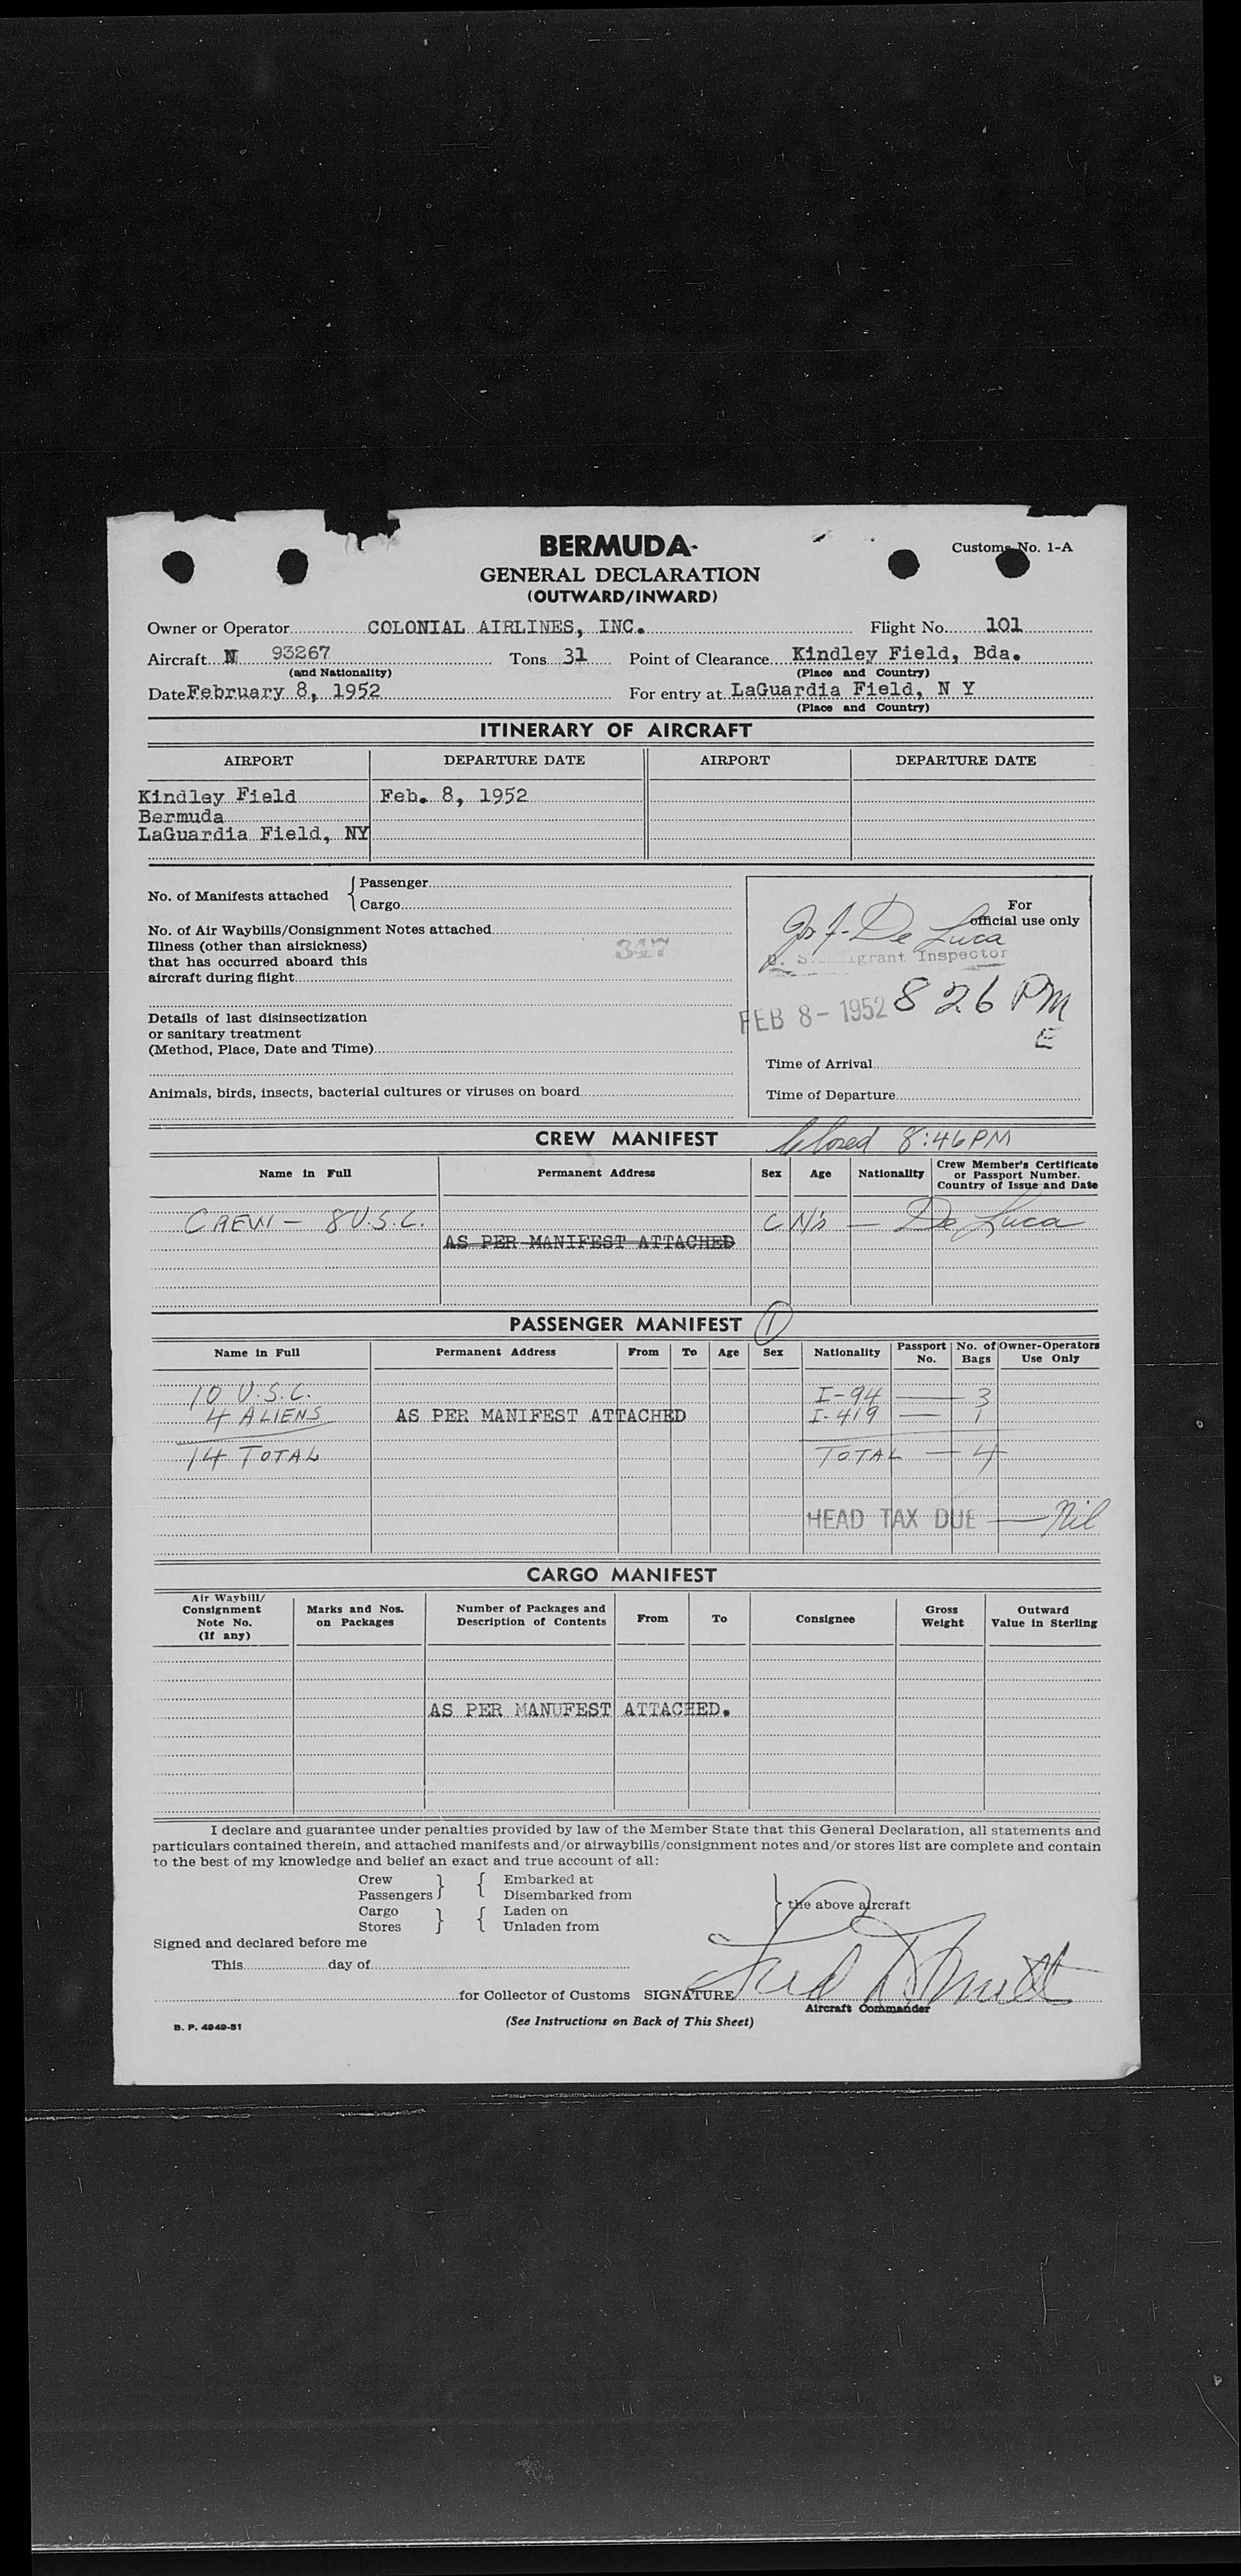 BERMUDA
Customs No. 1-A
GENERAL DECLARATION
(OUTWARD/INWARD)
Owner or Operator COLONIAL AIRLINES, INC. Flight No. 101
Aircraft N 93267 Tons 31 Point of Clearance Kindley Field, Bda.
(and Nationality) (Place and Country)
Date February 8, 1952 For entry at LaGuardia Field, N Y
(Place and Country)
ITINERARY OF AIRCRAFT
AIRPORT DEPARTURE DATE AIRPORT DEPARTURE DATE
Kindley Field Feb. 8, 1952
Bermuda
LaGuardia Field, NY
No. of Manifests attached { Passenger
Cargo
For
official use only
No. of Air Waybills/Consignment Notes attached
Illness (other than airsickness)
that has occurred aboard this
aircraft during flight
347
De Luca
Inspector
Details of last disinsectization
or sanitary treatment
(Method, Place, Date and Time)
FEB 8 - 1952 8 26 PM
E
Time of Arrival
Animals, birds, insects, bacterial cultures or viruses on board
Time of Departure
CREW MANIFEST Closed 8:46 PM
Name in Full Permanent Address Sex Age Nationality Crew Member's Certificate or Passport Number. Country of Issue and Date
CREW - 8 U.S.C. C N's - De Luca
AS PER MANIFEST ATTACHED
PASSENGER MANIFEST 1
Name in Full Permanent Address From To Age Sex Nationality Passport No. No. of Bags Owner-Operators Use Only
10 U.S.C. I-94 — 3
4 ALIENS AS PER MANIFEST ATTACHED I-419 — 1
14 TOTAL TOTAL — 4
HEAD TAX DUE — Nil
CARGO MANIFEST
Air Waybill/ Consignment Note No. (If any) Marks and Nos. on Packages Number of Packages and Description of Contents From To Consignee Gross Weight Outward Value in Sterling
AS PER MANUFEST ATTACHED.
I declare and guarantee under penalties provided by law of the Member State that this General Declaration, all statements and
particulars contained therein, and attached manifests and/or airwaybills/consignment notes and/or stores list are complete and contain
to the best of my knowledge and belief an exact and true account of all:
Crew Embarked at
Passengers Disembarked from
Cargo Laden on the above aircraft
Stores Unladen from
Signed and declared before me
This day of
for Collector of Customs SIGNATURE
Aircraft Commander
B. P. 4949-51 (See Instructions on Back of This Sheet)